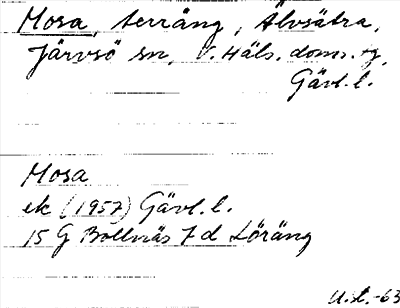 Mosa, terräng, Älvsätra,
Järvsö sn, V. Häls. doms.g,
Gävl.l.
Mosa
ek (1957) Gävl.l.
15 G Bollnäs 7 d Löräng
U.L.-63